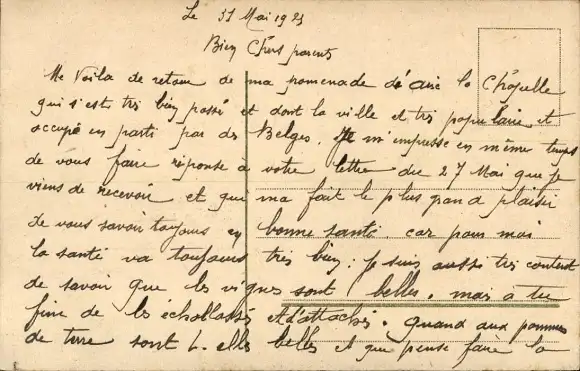 Le 31 Mai 1923
Bien Chers parents
Me Voila de retour de ma promenade d'aix la Chapelle
qui s'est très bien passé et dont la ville et très populaire et
occupé en parti par des Belges. Je m'empresse en même temps
de vous faire réponse a votre lettre du 27 Mai que je
viens de recevoir et que ma fait le plus grand plaisir
de vous savoir toujours en bonne santé. car pour moi
la santé va toujours très bien. je suis aussi très content
de savoir que les vignes sont belles. mais a tu
fini de les échallassés et d'attachés. Quand aux pommes
de terre sont t. elles belles et que pense faire la